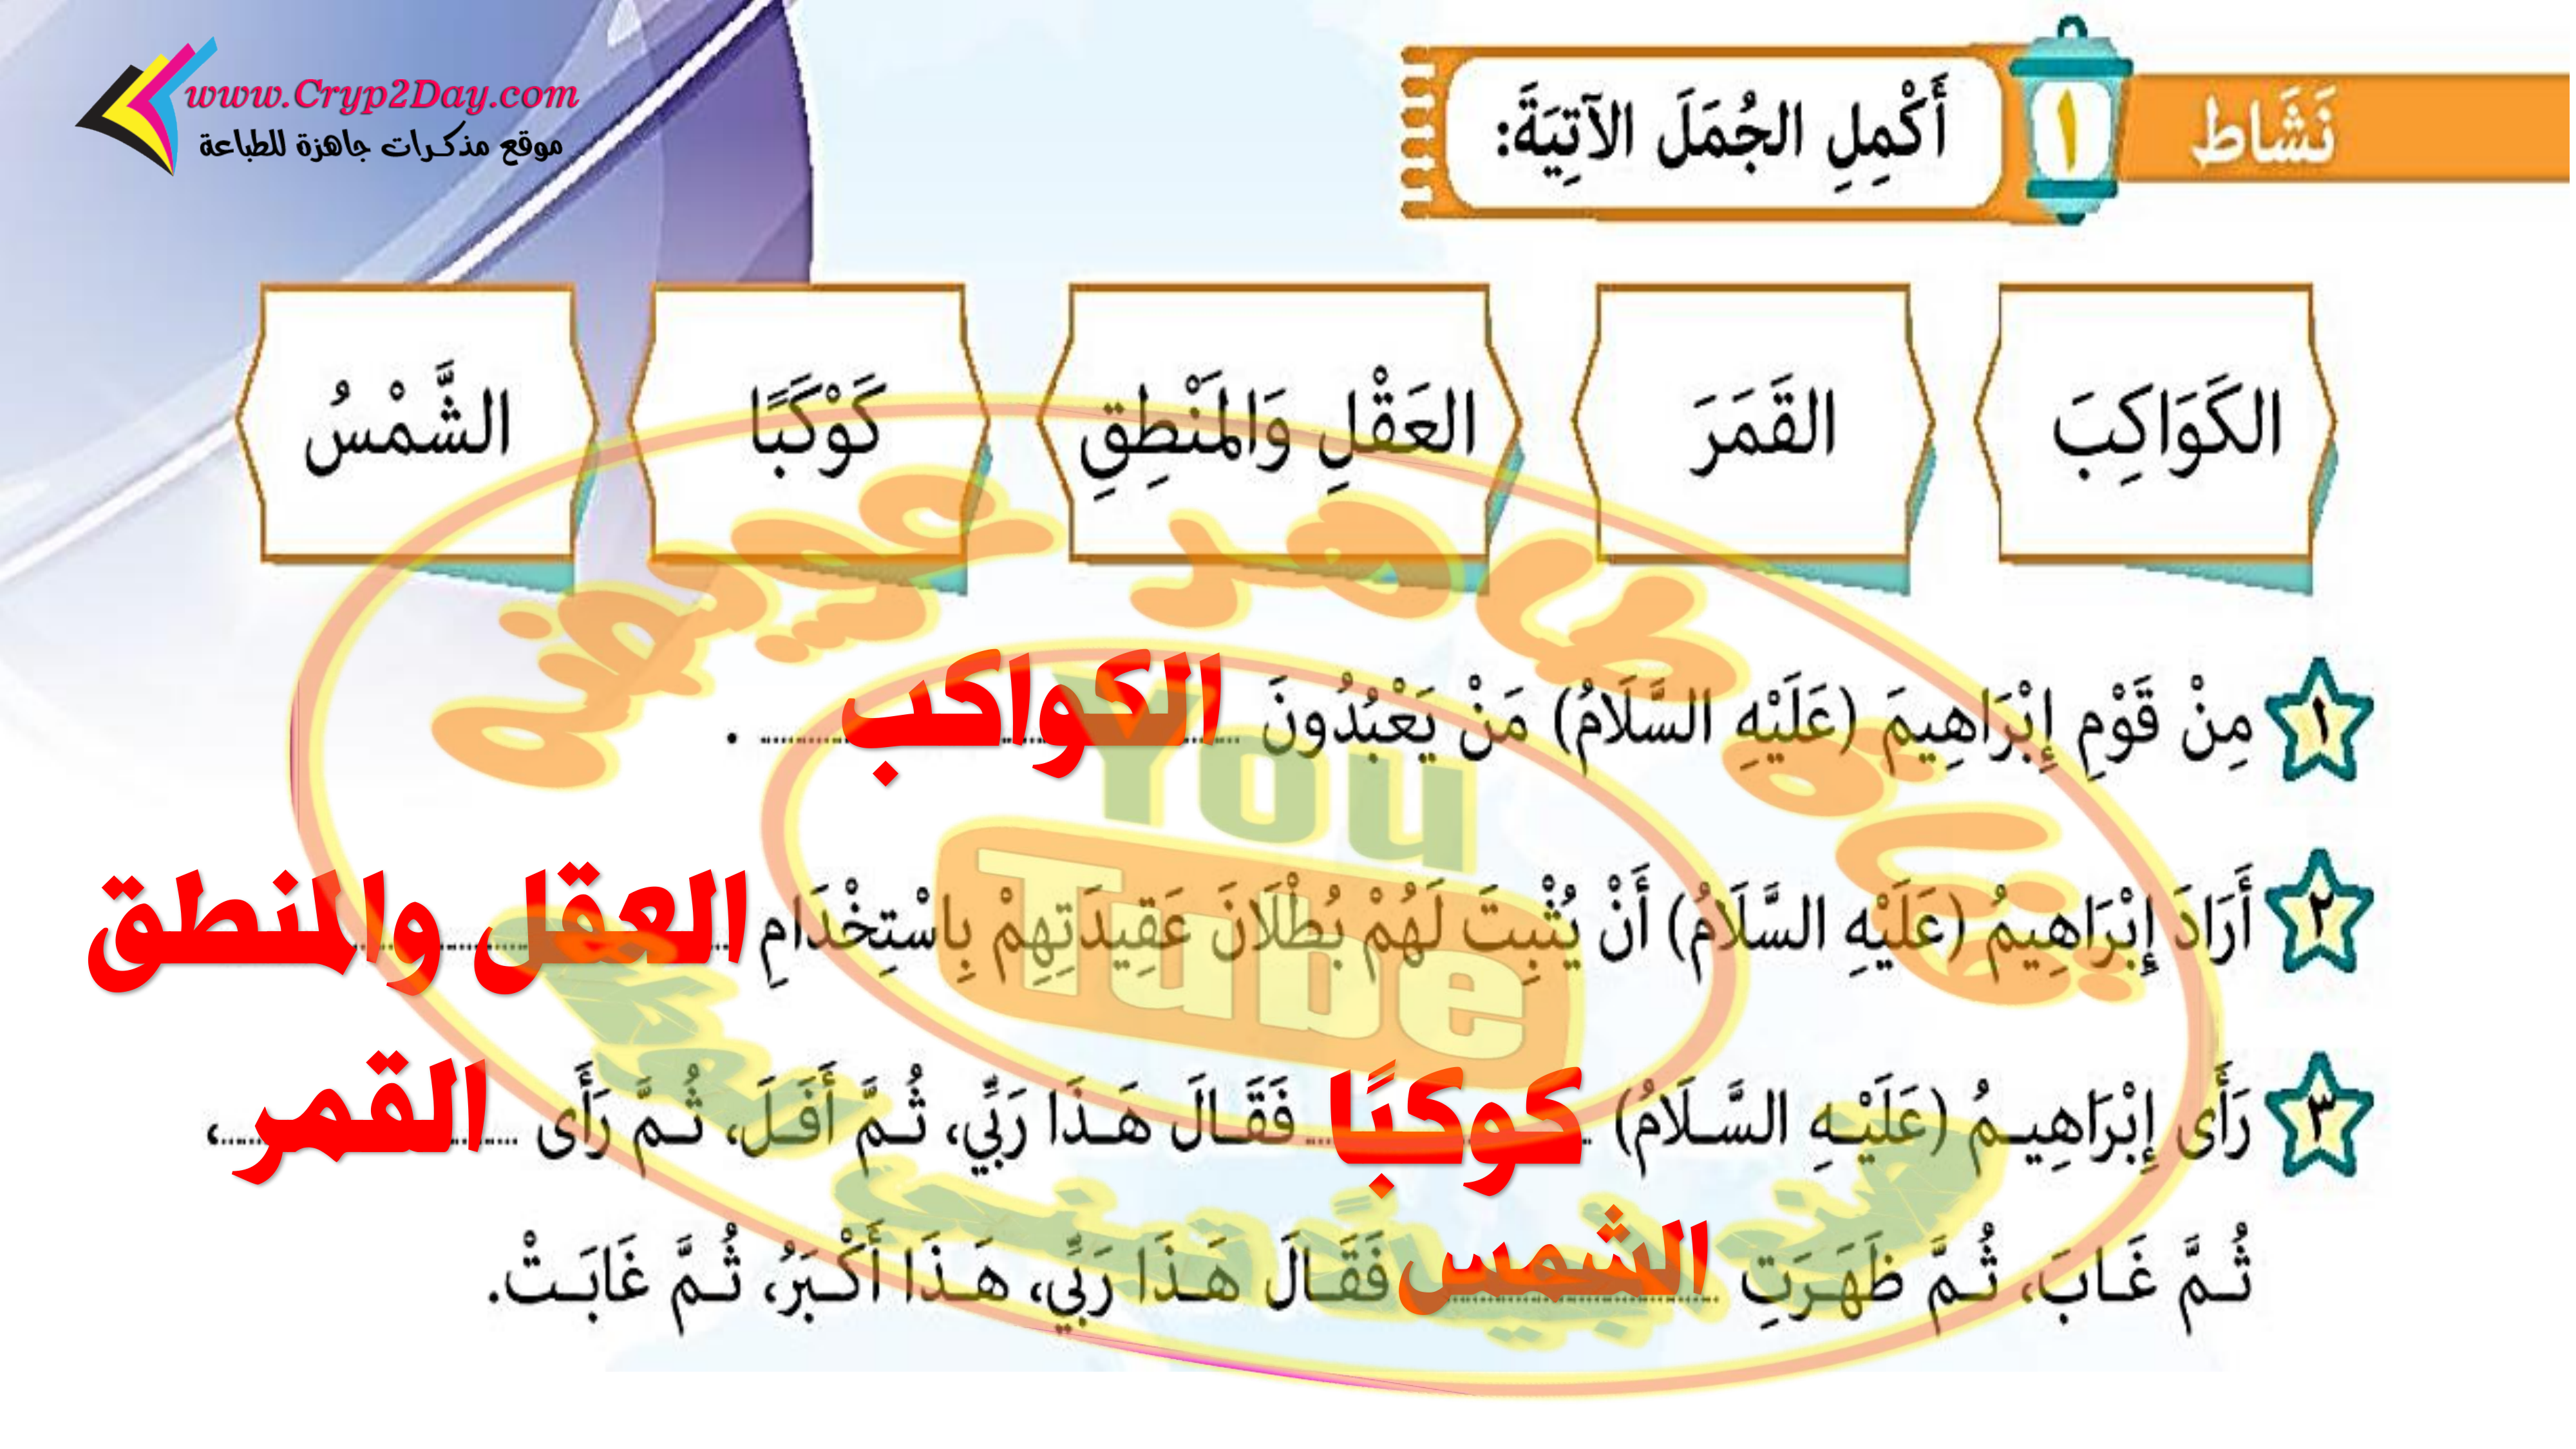 www.Cryp2Day.com
موقع مذكرات جاهزة للطباعة
نَشَاط ١ أَكْمِلِ الجُمَلَ الآتِيَةَ:
الكَوَاكِبَ القَمَرَ العَقْلِ وَالمَنْطِقِ كَوْكَبًا الشَّمْسُ
١ مِنْ قَوْمِ إِبْرَاهِيمَ (عَلَيْهِ السَّلَامُ) مَنْ يَعْبُدُونَ الكواكب .
٢ أَرَادَ إِبْرَاهِيمُ (عَلَيْهِ السَّلَامُ) أَنْ يُثْبِتَ لَهُمْ بُطْلَانَ عَقِيدَتِهِمْ بِاسْتِخْدَامِ العقل والمنطق
٣ رَأَى إِبْرَاهِيمُ (عَلَيْهِ السَّلَامُ) كوكبًا فَقَالَ هَذَا رَبِّي، ثُمَّ أَفَلَ، ثُمَّ رَأَى القمر،
ثُمَّ غَابَ، ثُمَّ ظَهَرَتِ الشمس فَقَالَ هَذَا رَبِّي، هَذَا أَكْبَرُ، ثُمَّ غَابَتْ.
You
Tube